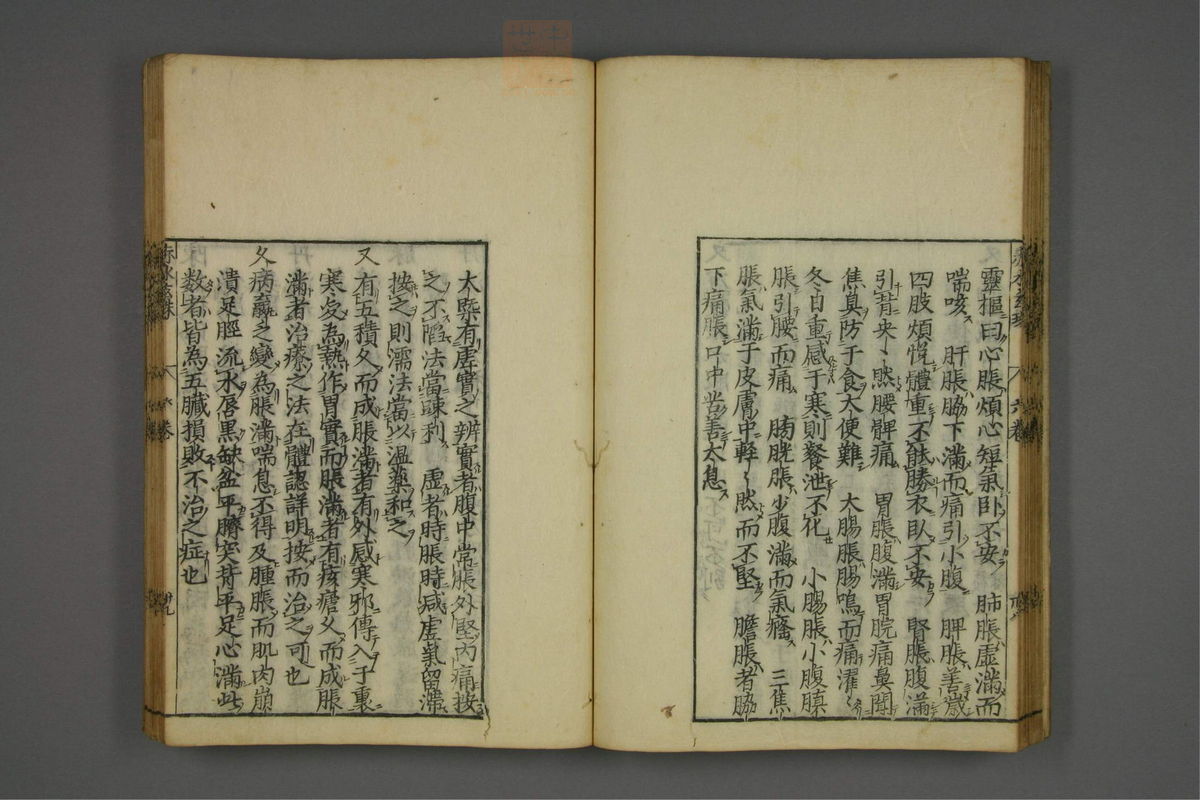 靈樞曰心脹煩心短氣卧不安　肺脹虛滿而
喘咳　肝脹脇下滿而痛引小腹　脾脹善歲
四肢煩悗體重不能勝衣臥不安　腎脹腹滿
引背央〻然腰髀痛　胃脹腹滿胃脘痛鼻聞
焦臭防于食大便難　大腸脹腸鳴而痛濯〻
冬日重感于寒則飱泄不化　小腸脹小腹䐜
脹引腰而痛　胱脹少腹滿而氣癃　三焦
脹氣滿于皮膚中輕〻然而不堅　膽脹者脇
下痛脹口中苦善太息
大槩有虛實之辨實者腹中常脹外堅內痛按
之不陷法當踈利　虛者時脹時减虛氣留滯
按之則濡法當以温藥和之
又有五積久而成脹滿者有外感寒邪傳入于裏
寒变為熱作胃實而脹滿者有痎瘧久而成脹
滿者治療之法在體認詳明按而治之可也
久病羸之變為脹滿喘息不得及腫脹而肌肉崩
潰足脛流水唇黑缺盆平臍突背平足心滿此
数者皆為五臟損敗不治之症也
六卷
六卷